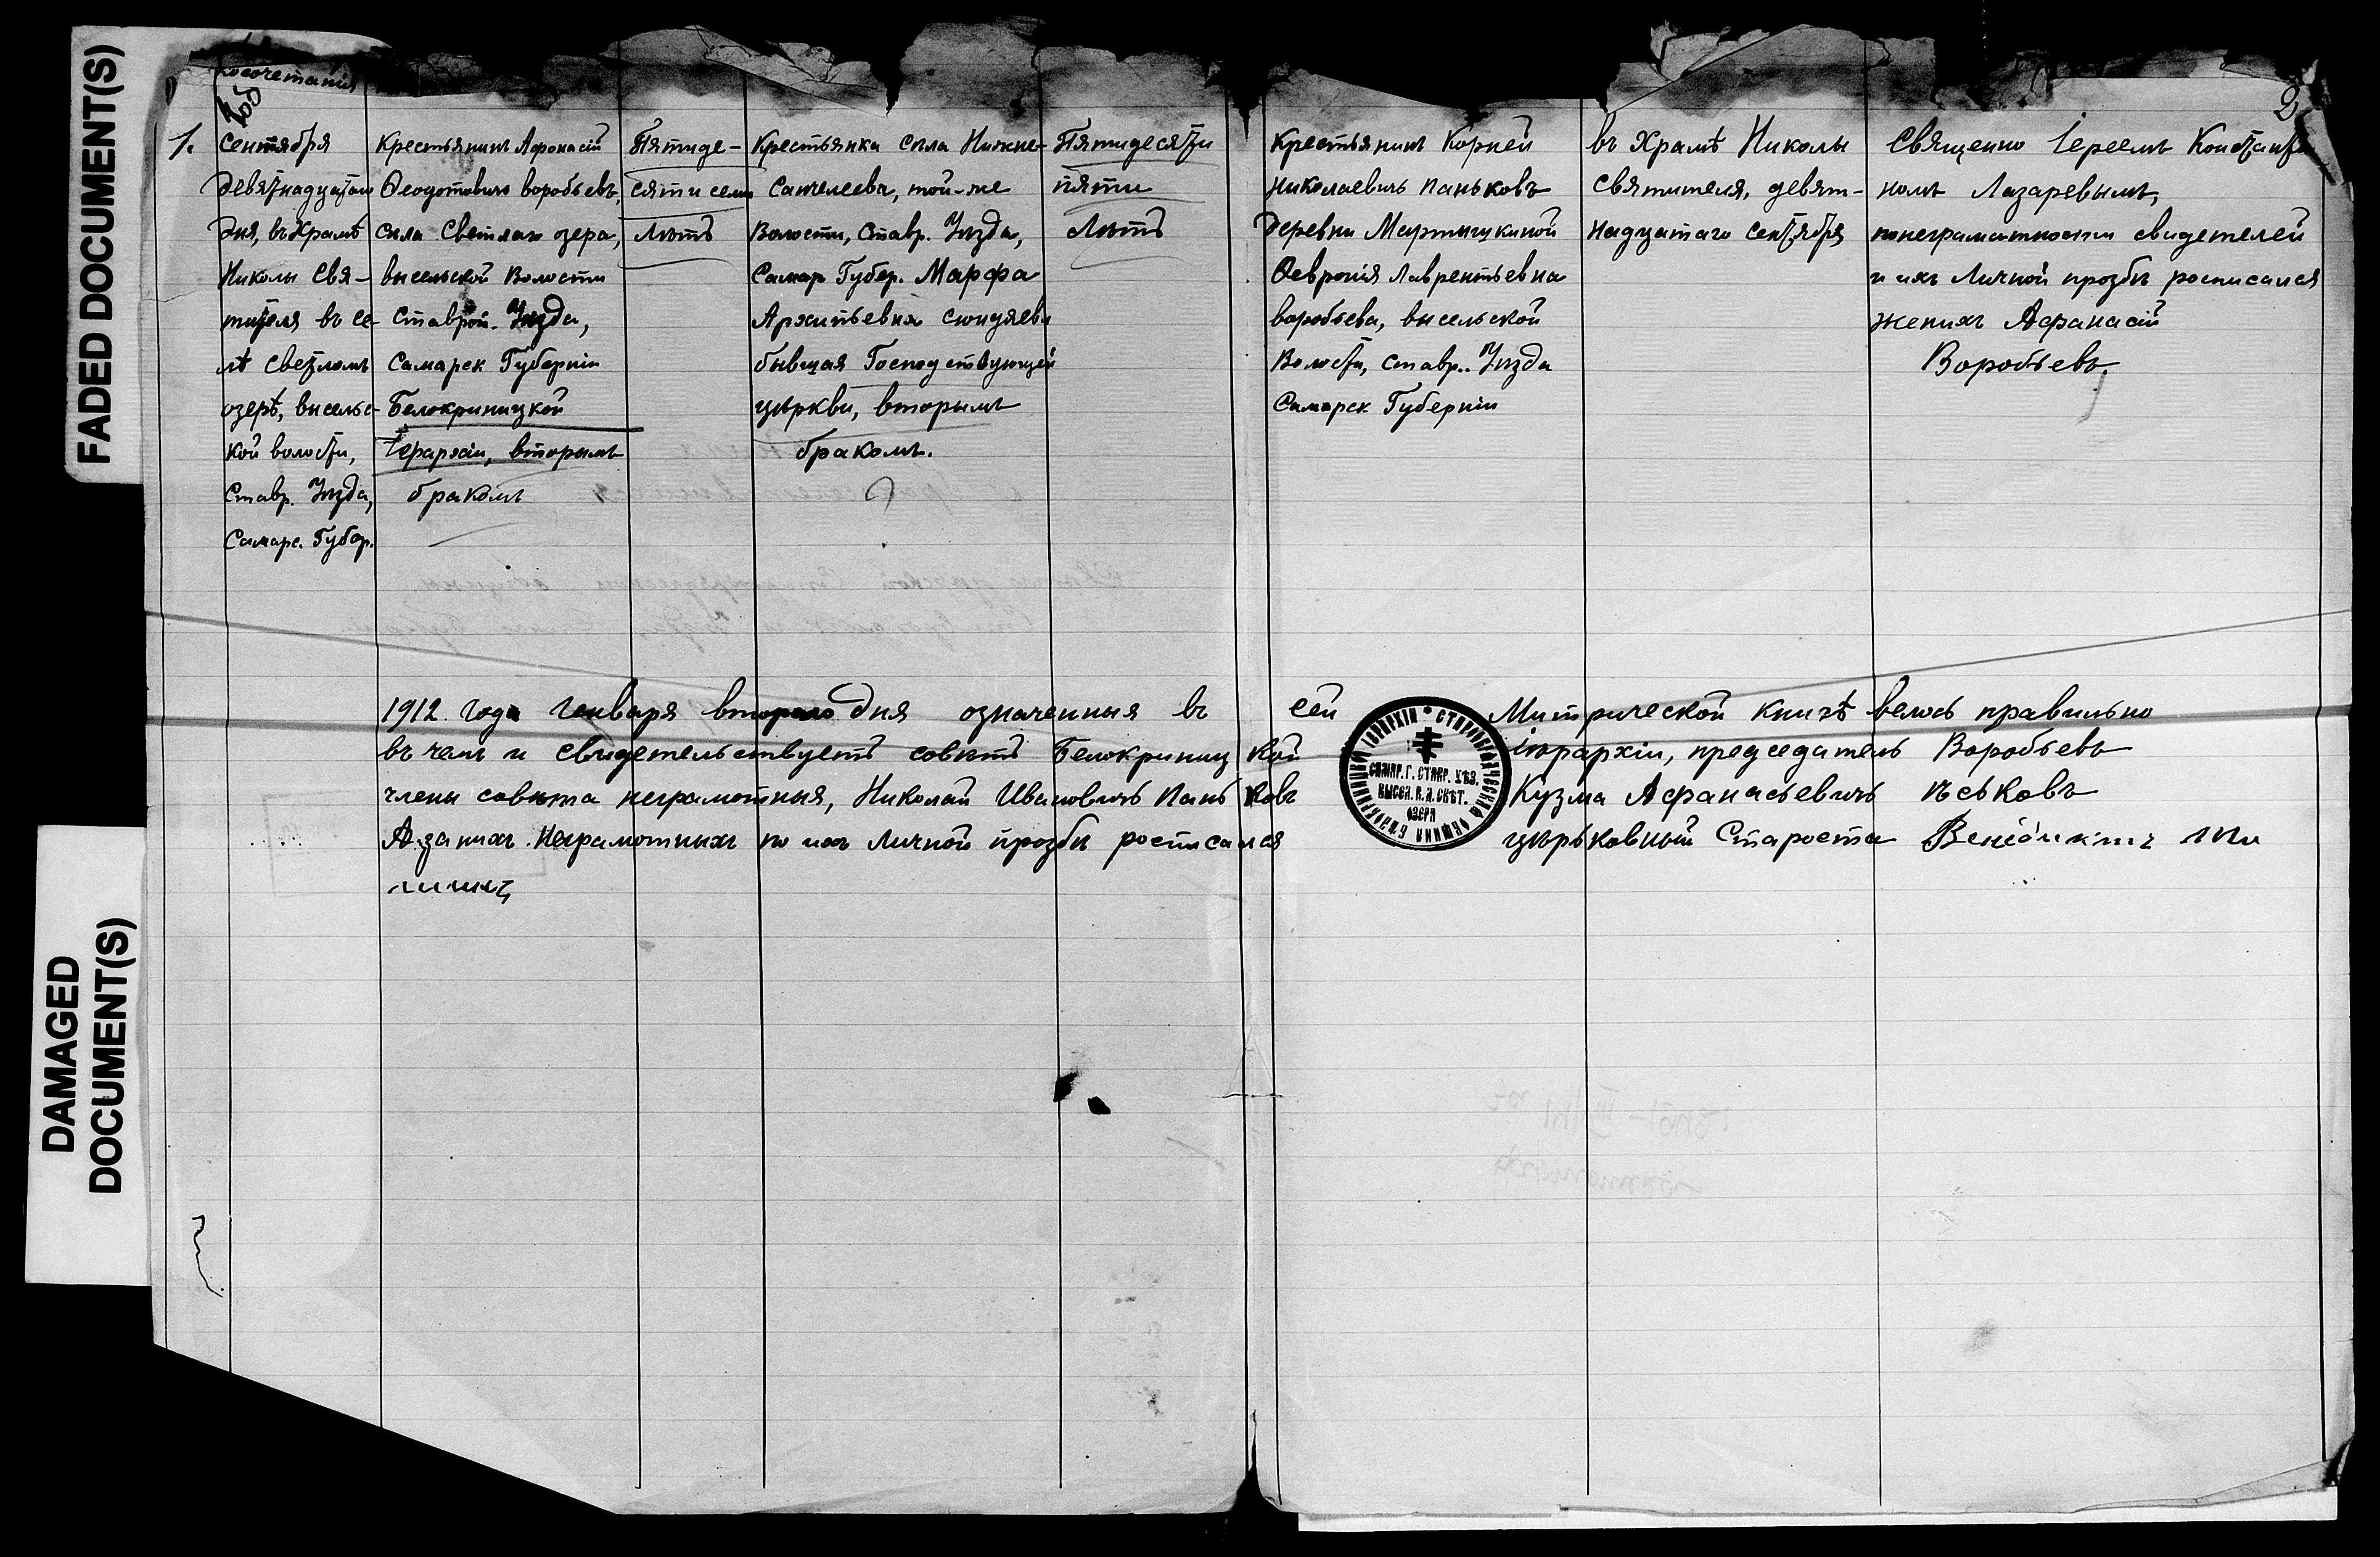 FADED DOCUMENT(S)
DAMAGED
DOCUMENT(S)
2
1.
Сентября
девятнадцатаго
дня, въ Храмѣ
Николы Свя-
тителя въ се-
лѣ Светломъ
озерѣ, высельс-
кой волости,
Ставр. Уѣзда,
Самарс. Губер.
Крестьянинъ Афонасій
Ѳеодотовичъ воробьевъ,
села Светлаго озера,
высельской Волости
Ставроп. Уѣзда,
Самарск Губерніи
Белокриницкой
Іерархіи, вторымъ
бракомъ
Пятиде-
сяти семи
Лѣтъ
Крестьянка Села Нижне-
Санчелеева, той-же
Волости, Ставр. Уѣзда,
Самар Губер. Марфа
Архипьевна
бывшая Господствующей
цѣркви, вторымъ
бракомъ.
Пятидесяти
пяти
Лѣтъ
Крестьянинъ Корней
николаевичъ паньковъ
деревни Мартышкиной
Ѳевронія Лаврентьевна
воробьева, высельской
Волости, Ставр. Уѣзда
Самарск Губерніи
въ Храмѣ Николы
святителя, девят-
надцатаго Сентября
Священно Іереемъ Константи
номъ Лазаревымъ,
понеграматности свидетелей
и ихъ Личной прозбѣ росписался
женихъ Афанасій
Воробьевъ.
1912 года Генваря второго дня означенныя въ сей Митрической книгѣ велось правильно
въ чемъ и свидетельствуетъ совѣтъ Белокриницкой іерархіи, председатель Воробьевъ
члены совѣта неграмотныя, Николай Ивановичъ Паньковъ Кузма Афанасьевичъ пѣськовъ
А за нихъ неграмотныхъ по ихъ Личной прозбѣ росписался цѣрьковный Староста
САМАР. Г. СТАВР. УѢЗ.
ОЗЕРА